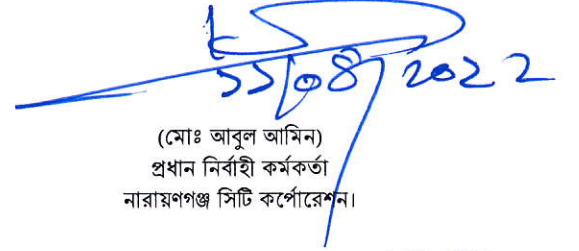 ১১/০৪/২০২২
(মোঃ আবুল আমিন)
প্রধান নির্বাহী কর্মকর্তা
নারায়ণগঞ্জ সিটি কর্পোরেশন।